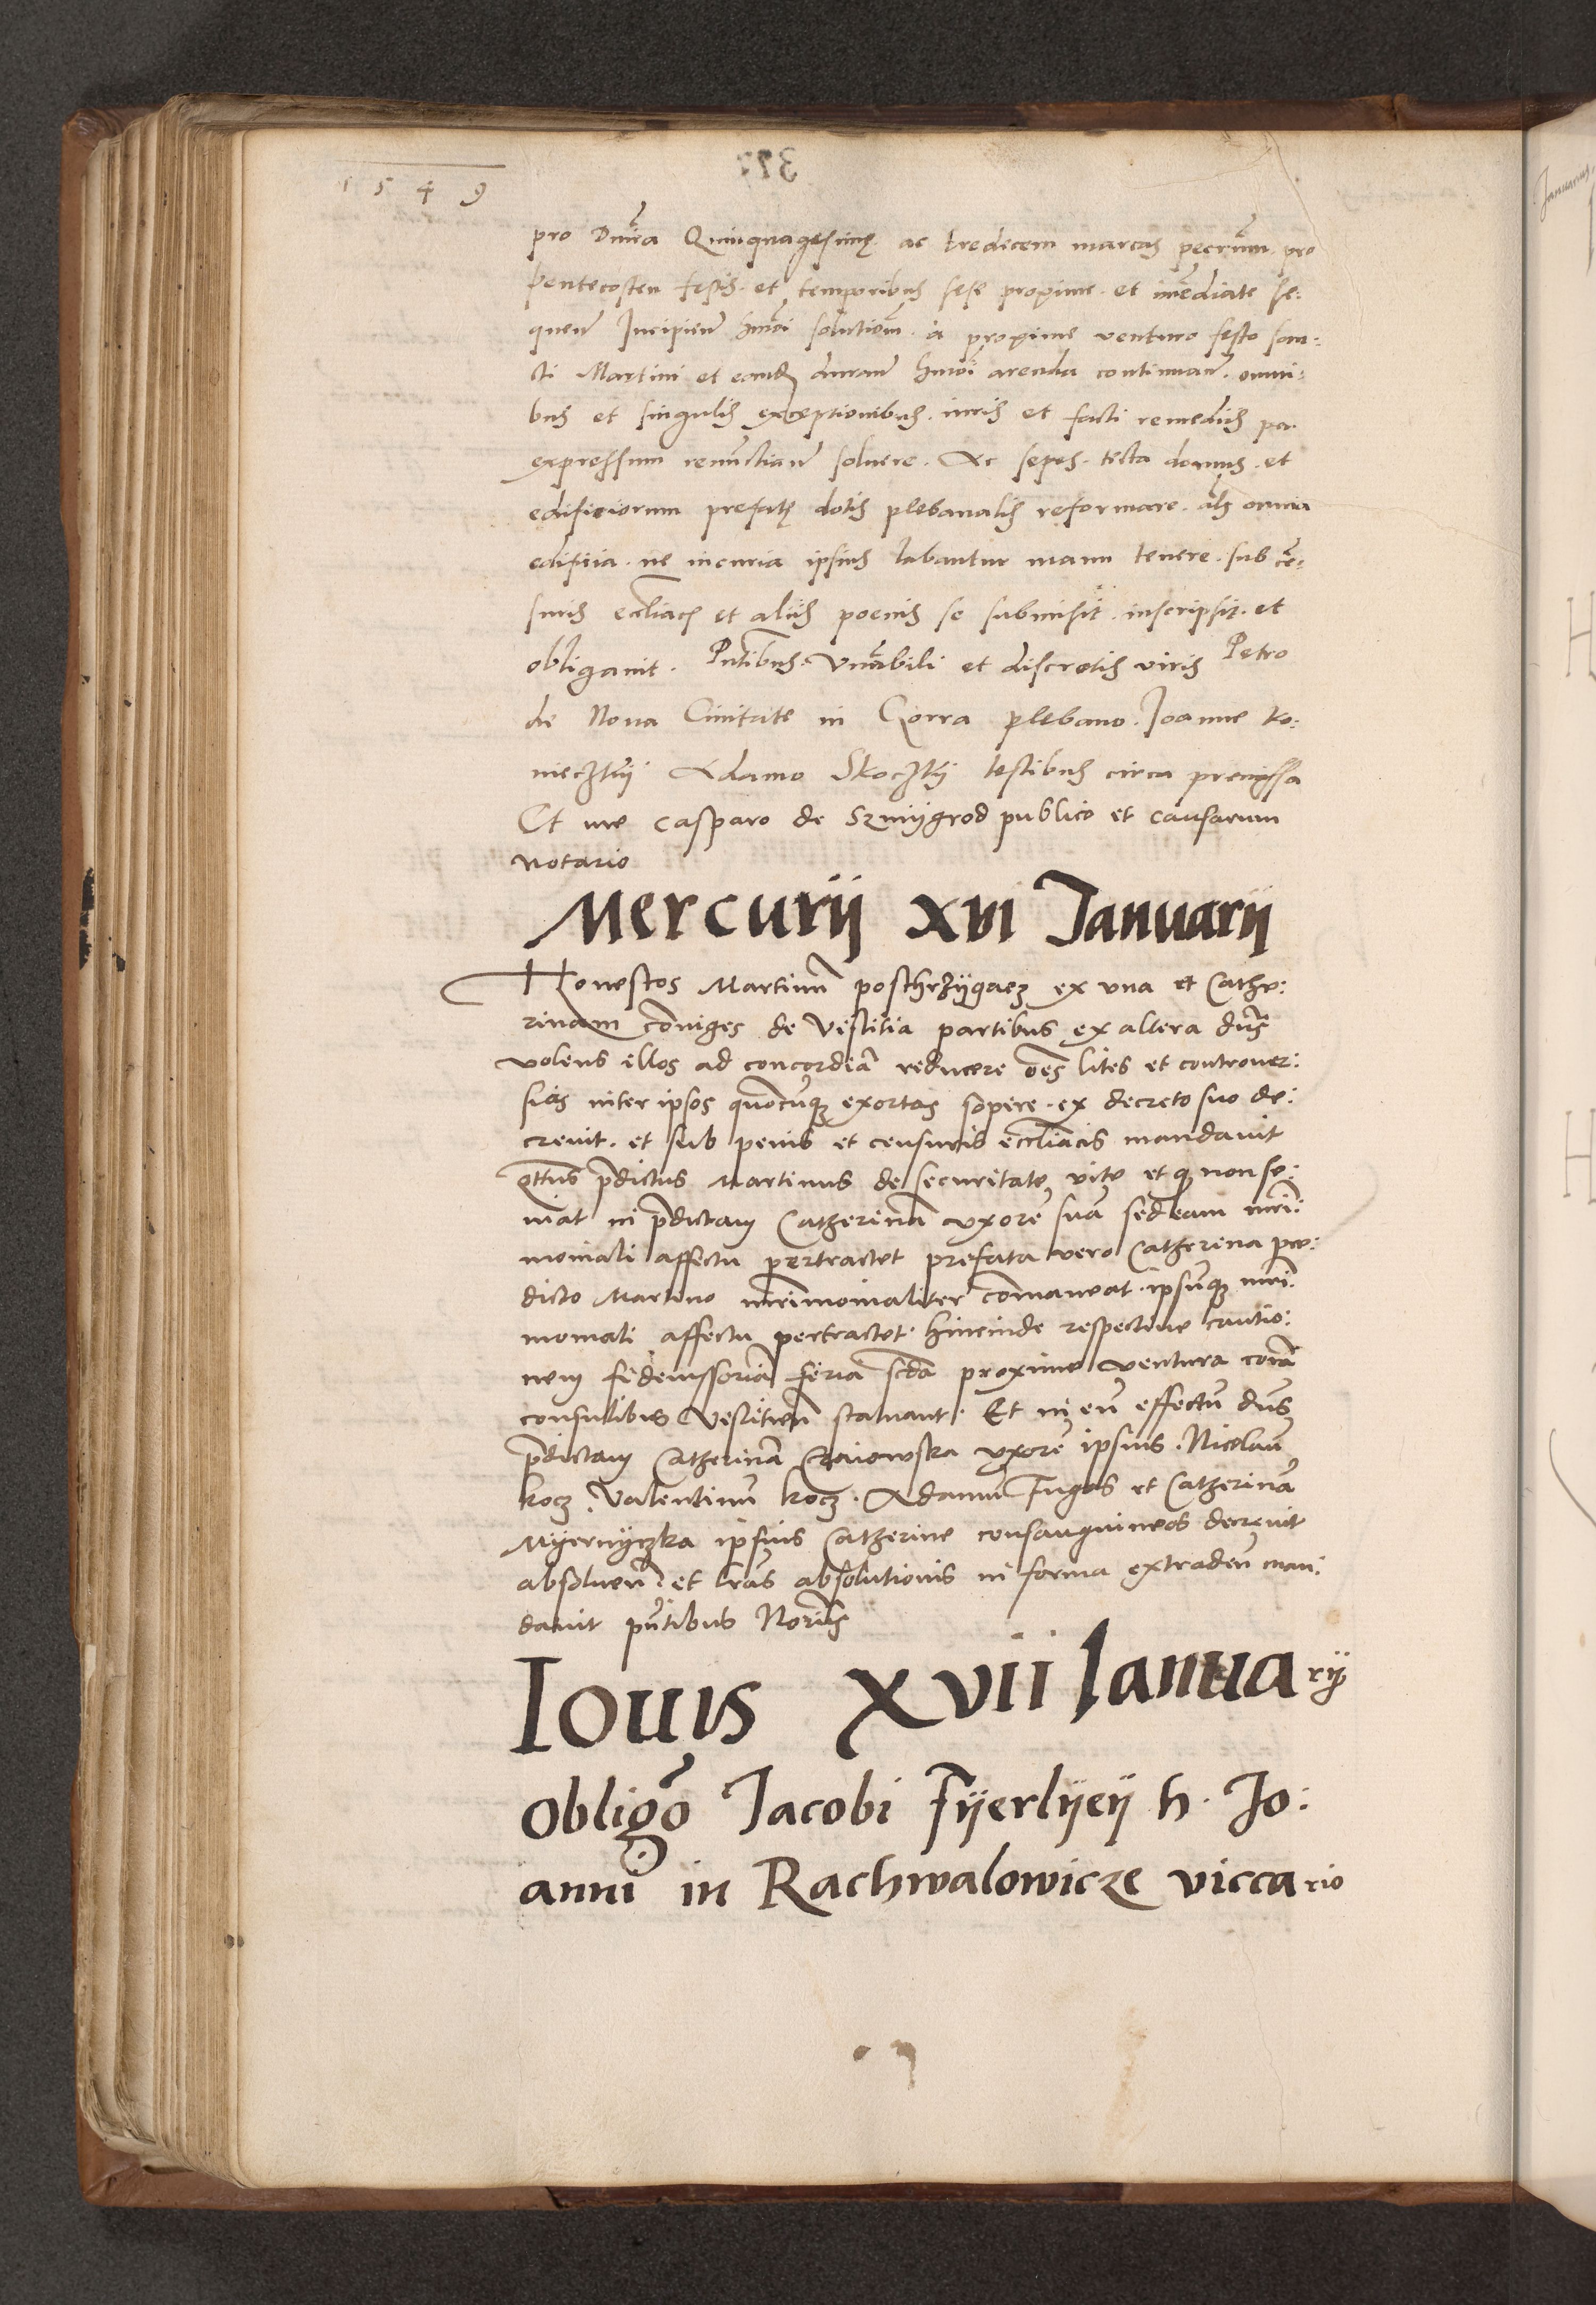 1549
pro Dnica Quinquagesime ac tredecem marcas pecrum pro
pentecosten festis et temporibus sese proxime et imediate se:
quen Incipien hmoi solutiom a proxime venturo festo san:
cti Martini et eand duran hmoi arenda continuan omni:
bus et singulis exceptionibus iuris et facti remediis per
expressum renunctian soluere Ac sepes tecta domus et
edificiorum prefate dotis plebanalis reformare als omnia
edificia ne incuria ipsius labantur manu tenere sub cen:
suris eccliacis et aliis poenis se submisit inscripsit et
obligauit. Pntibus Vnabili et discretis viris Petro
de Noua Ciuitate in Gorra plebano Joanne Ko:
nieczkij Adamo Skoczkij testibus circa premissa
Et me Casparo de Szmijgrod publico et causarum
notario
Mercurij xvi Januarij
Honestos Martinum poschrzijgacz ex vna et Cathe:
rinam coniuges de Vislicia partibus ex altera dns
volens illos ad concordiam reducere oes lites et controuer:
sias inter ipsos quocunque exortas sopere ex decreto suo de:
creuit et sub penis et censuris eccliacis mandauit
qttus pdictus Martinus de securitate vite et q non se:
uiat in pdictam Catherinam vxore sua sed eam mri:
moniali affectu pertractet prefata vero Catherina pre:
dicto Martino mrimonialiter comaneat ipsumque mri:
moniali affectu pertractet hincinde respectiue cautio:
nem fideiussoria feria scda proxime ventura cora
consulibus Vislicien statuant. Et in eu effectu dns
pdictam Catherina Czaiowska vxore ipsius Nicolau
kocz Valentinu kocz Adamu Fugas et Catherina
Mijernijczka ipsius Catherine consanguineos decreuit
absoluen et lras absolutionis in forma extraden man:
dauit pntibus Noriis
Iouis xvii Ianuarij
Obligo Jacobi Fijerlijeij h. Jo:
anni in Rachwalowicze viccario